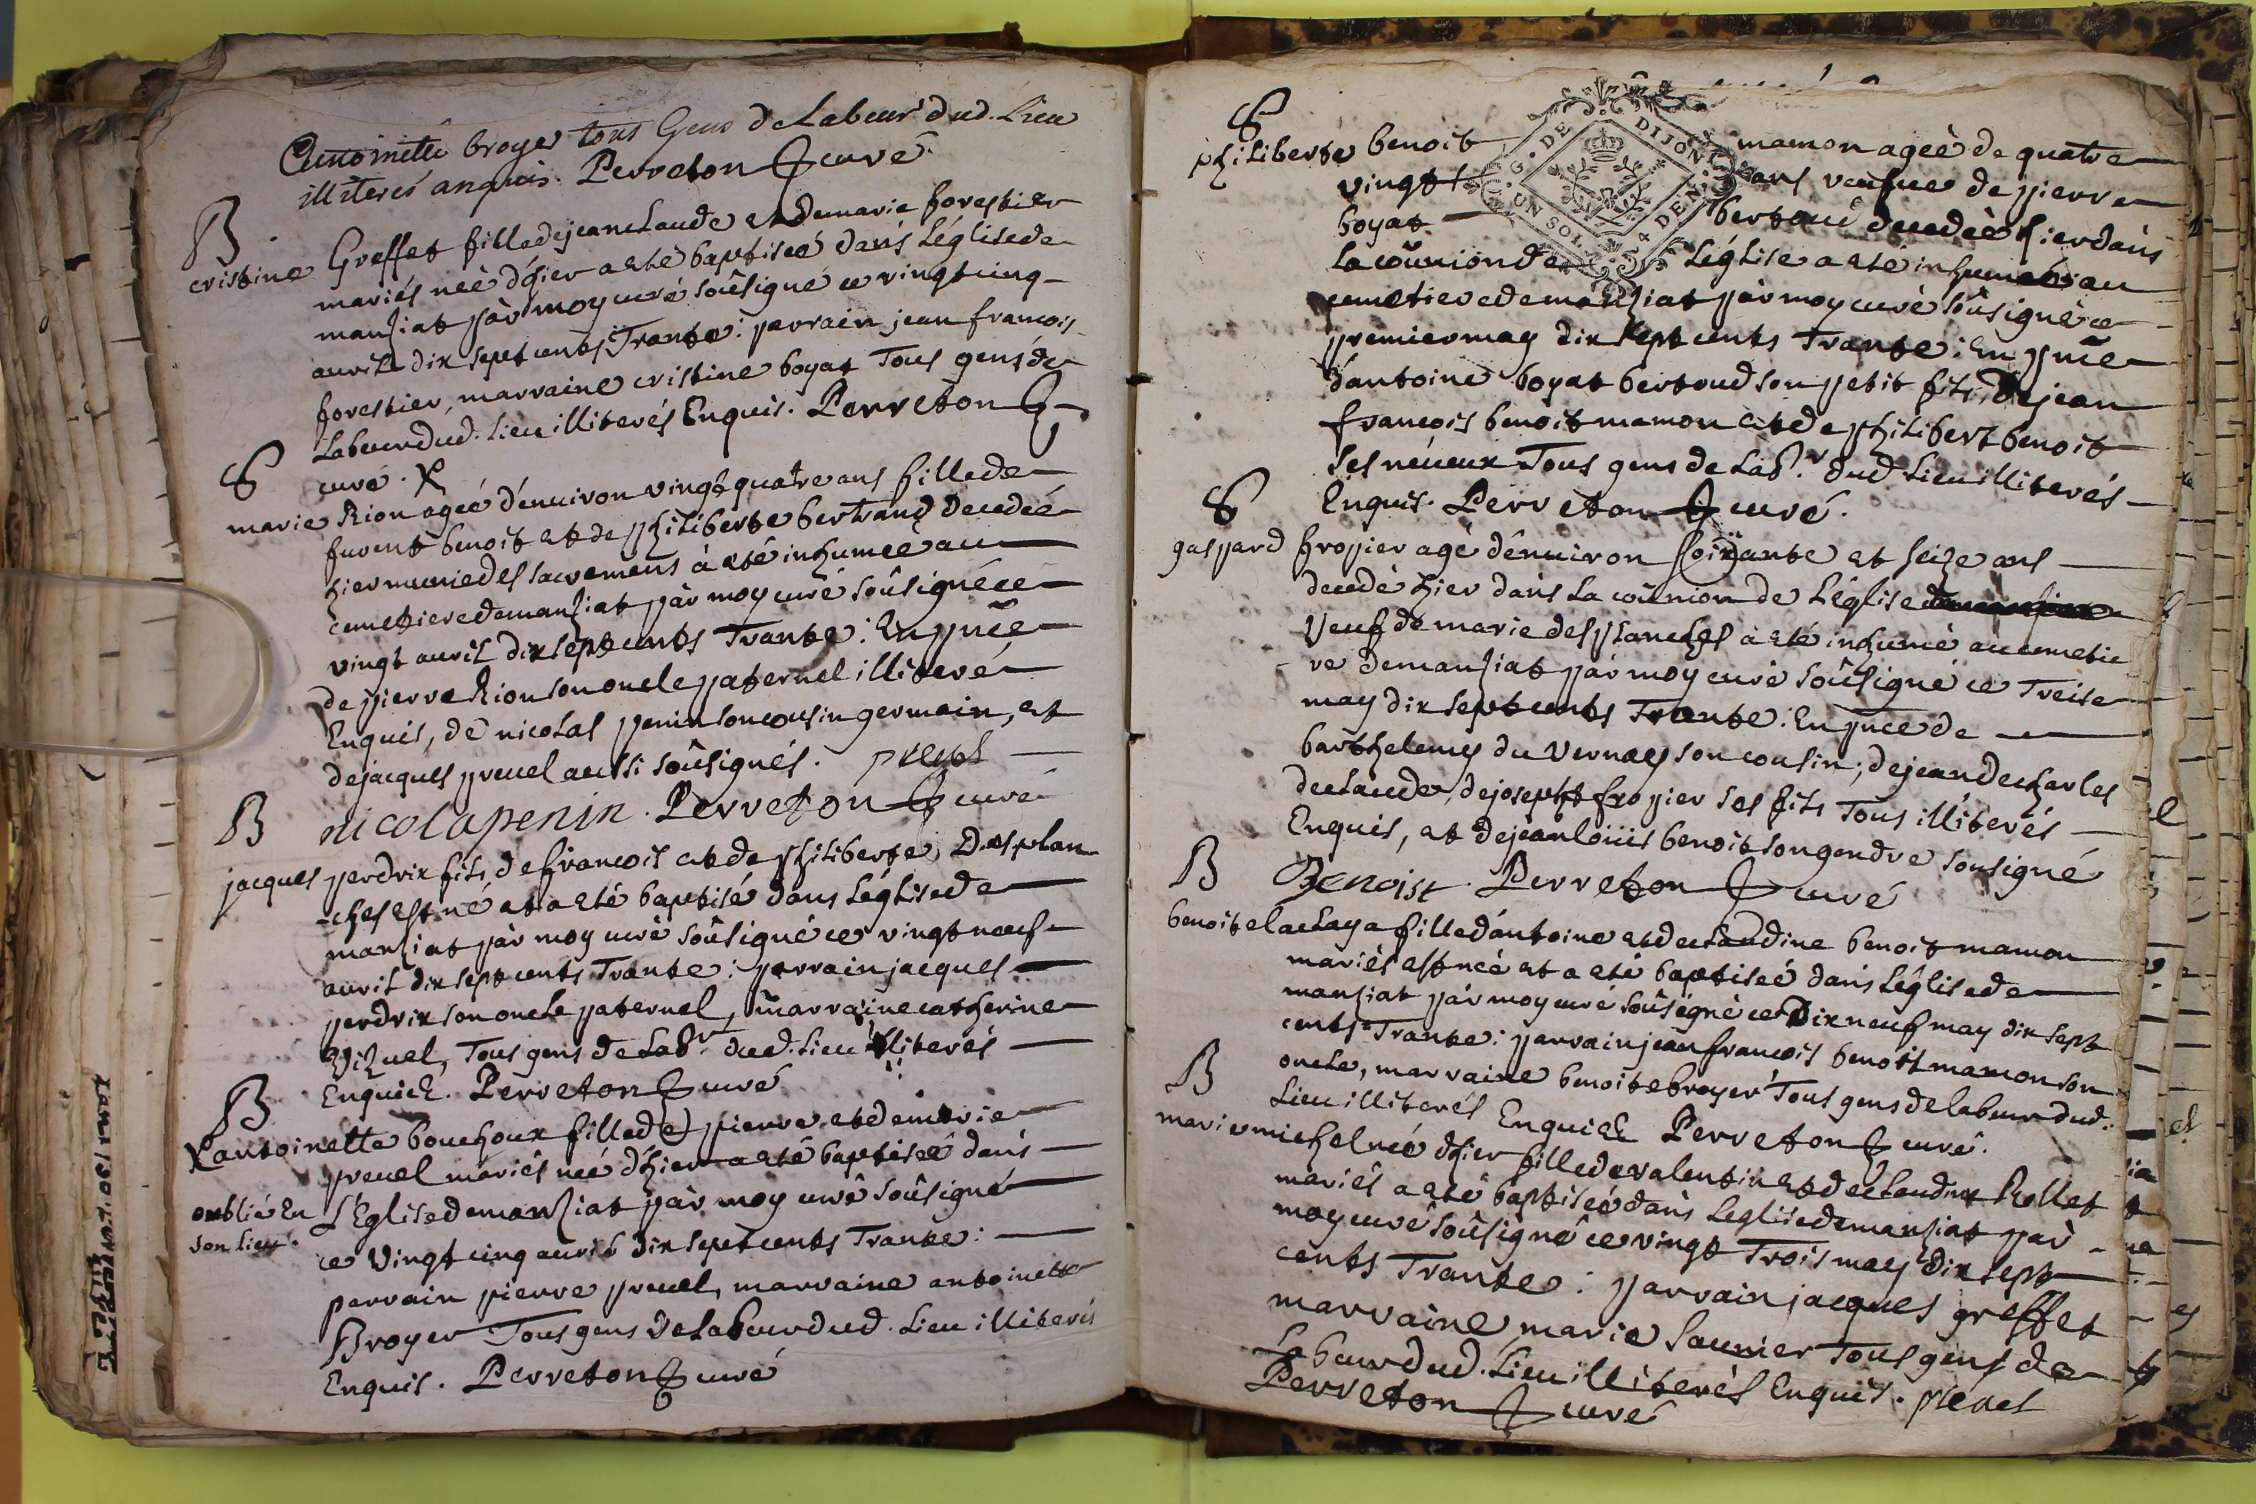 broyer tous Gens de Labeur dud. Lieu
illiterés anquis. Perreton curé
B
cristine Greffet fille de jean claude et de marie forestier
mariés neè d'hier a eté baptiseé dans L'église de
manziat pàr moy curé soûsigné ce vingt cinq
avril dix sept cents Trante: parrain jean francois
forestier, marraine cristine boyat Tous gens de
Labeur dud. Lieu illiterés Enquis. Perreton
curé.
S
marie Rion ageé d'enuiron vingt quatre ans fille de
furent benoit et de philiberte bertrand decedeé
hier munie des sacremens à eté inhumeè au
cemetiere de manziat pàr moy curé soûsigné ce
vingt auril dix sept cents Trante: En pnce
de pierre Rion son oncle paternel illiteré
Enquis, de nicolas penin son cousin germain, et
de jacques preuel aussi soûsignés.
nicola penin. Perreton curé
B
jacques perdrix fils de francois et de philiberte Desplan
ches est né et a eté baptisé dans L'église de
manziat pàr moy curé soûsigné ce vingt neuf
auril dix sept cents Trante: parrain jacques
perdrix son oncle paternel, marraine catherine
Tous gens de Labr. dud. Lieu illiterés
Enquiz. Perreton curé
B
antoinette bouchoux fille de pierre et de marie
preuel mariés neé d'hier a eté baptiseé dans
oublié En L'Eglise de manziat pàr moy curé soûsigné
son lieu. ce Vingt cinq auril dix sept cents Trante:
parrain pierre preuel, marraine antoinette
Broyer Tous gens de Labeur dud. Lieu illiterés
Enquis. Perreton curé
G. DE DIJON
UN SOL. 4 DEN.
S
philiberte benoit mamon ageè de quatre
vingt ans veufue de pierre
boyat bertoud decedeè hier dans
La coûnion de L'église a eté inhumeé au
cemetiere de manziat pàr moy curè soûsigné ce
premier may dix sept cents Trante: En pnce
d'antoine boyat bertoud son petit fils, de jean
francois benoit mamon et de philibert benoit
ses neueux Tous gens de Labr. dud. Lieu illiterés
Enquis. Perreton curé.
S
gaspard fropier agè d'enuiron soixante et seize ans
decedè hier dans La coûnion de L'église
Veuf de marie desplanches a eté inhumé au cemetie
re de manziat pàr moy curè soûsigné ce Treise
may dix sept cents Trante: En pnce de
barthelemy du Vernay son cousin, de jean de charles
de claude, de joseph fropier ses fils Tous illiterés
Enquis, et de jean louis benoit son gendre sousigné
Benoist. Perreton curé
B
benoite laclaya fille d'antoine et de claudine benoit mamon
mariés est neé et a eté baptiseé dans L'église de
manziat pàr moy curé soûsigné ce Dix neuf may dix sept
cents Trante: parrain jean francois benoit mamon son
oncle, marraine benoite broyer Tous gens de labeur dud.
Lieu illiterés Enquiz Perreton curé.
B
marie michel neé d'hier fille de valentin et de claudine Rollet
mariés a eté baptiseé dans L'eglise de manziat pàr
moy curé soûsigné ce vingt Trois may dix sept
cents Trante: parrain jacques greffet
marraine marie saunier Tous gens de
Labeur dud. Lieu illiterés Enquis. preuel
Perreton curé